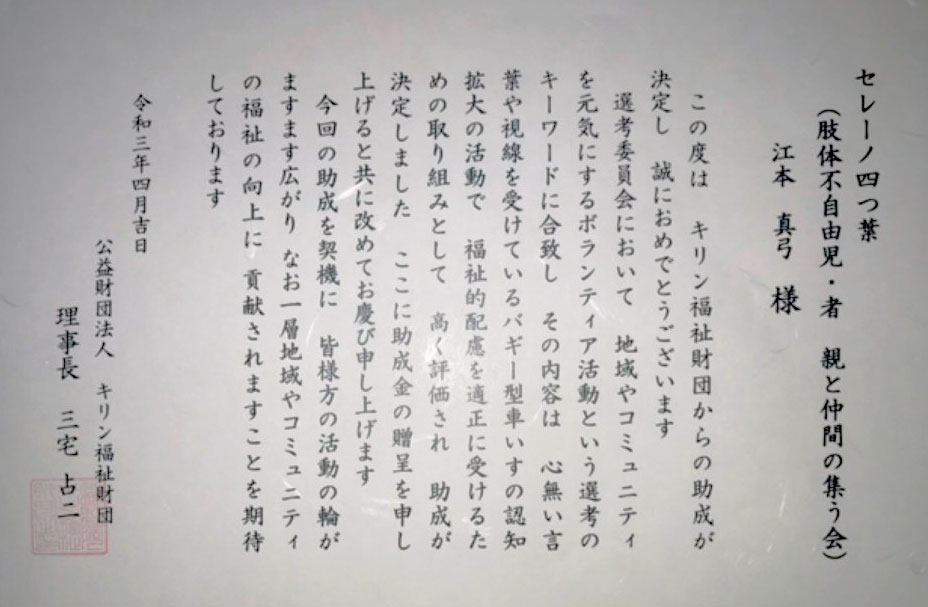 セレーノ四つ葉
（肢体不自由児・者　親と仲間の集う会）
江本　真弓　様
この度は　キリン福祉財団からの助成が
決定し　誠におめでとうございます
選考委員会において　地域やコミュニティ
を元気にするボランティア活動という選考の
キーワードに合致し　その内容は　心無い言
葉や視線を受けているバギー型車いすの認知
拡大の活動で　福祉的配慮を適正に受けるた
めの取り組みとして　高く評価され　助成が
決定しました　ここに助成金の贈呈を申し
上げると共に改めてお慶び申し上げます
今回の助成を契機に　皆様方の活動の輪が
ますます広がり　なお一層地域やコミュニティ
の福祉の向上に　貢献されますことを期待
しております
令和三年四月吉日
公益財団法人　キリン福祉財団
理事長　三宅　占二